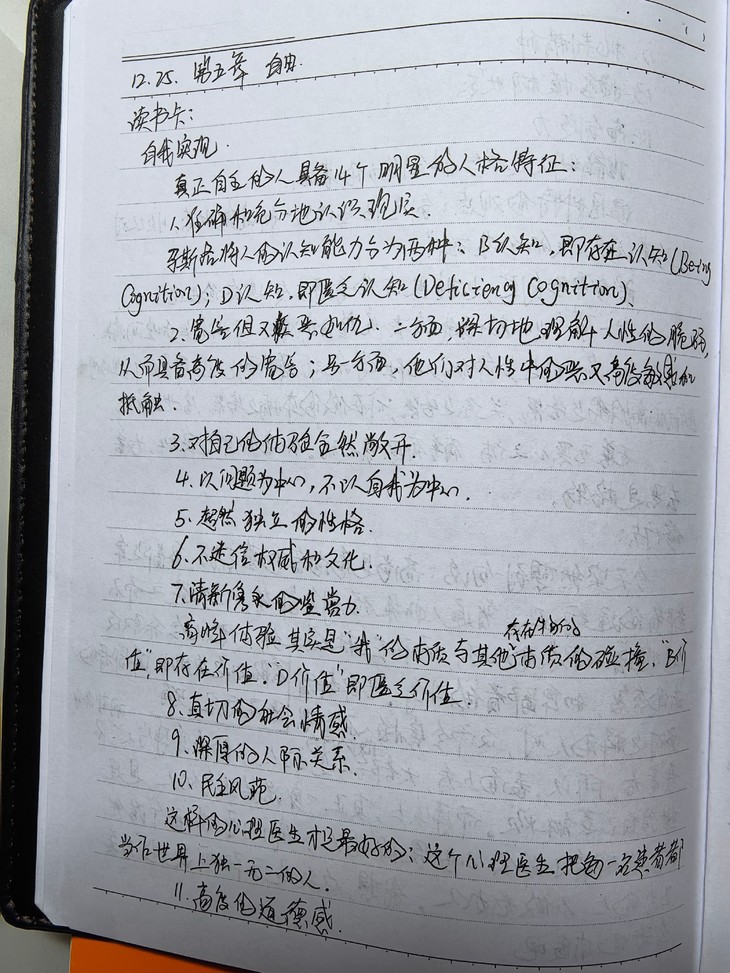 12.25. 第五章 自由.
读书卡：
自我实现.
真正自主的人具备14个明显的人格特征：
1.准确和充分地认识现实.
马斯洛将人的认知能力分为两种：B认知，即存在认知(Being
Cognition)；D认知，即匮乏认知(Deficiency Cognition)、
2.宽容但又嫉恶如仇. 一方面，深切地理解了人性的脆弱，
从而具备高度的宽容；另一方面，他们对人性中的恶又高度敏感和
抵触.
3.对自己的体验全然敞开.
4.以问题为中心，不以自我为中心.
5.超然独立的性格.
6.不迷信权威和文化.
7.清新隽永的鉴赏力.
存在物的
高峰体验其实是"我"的内质与其他内质的碰撞，"B价
值"，即存在价值."D价值"即匮乏价值.
8.真切的社会情感.
9.深厚的人际关系.
10.民主风范.
这样的心理医生才是最好的：这个心理医生把每一名患者都
当作世界上独一无二的人.
11.高度的道德感.